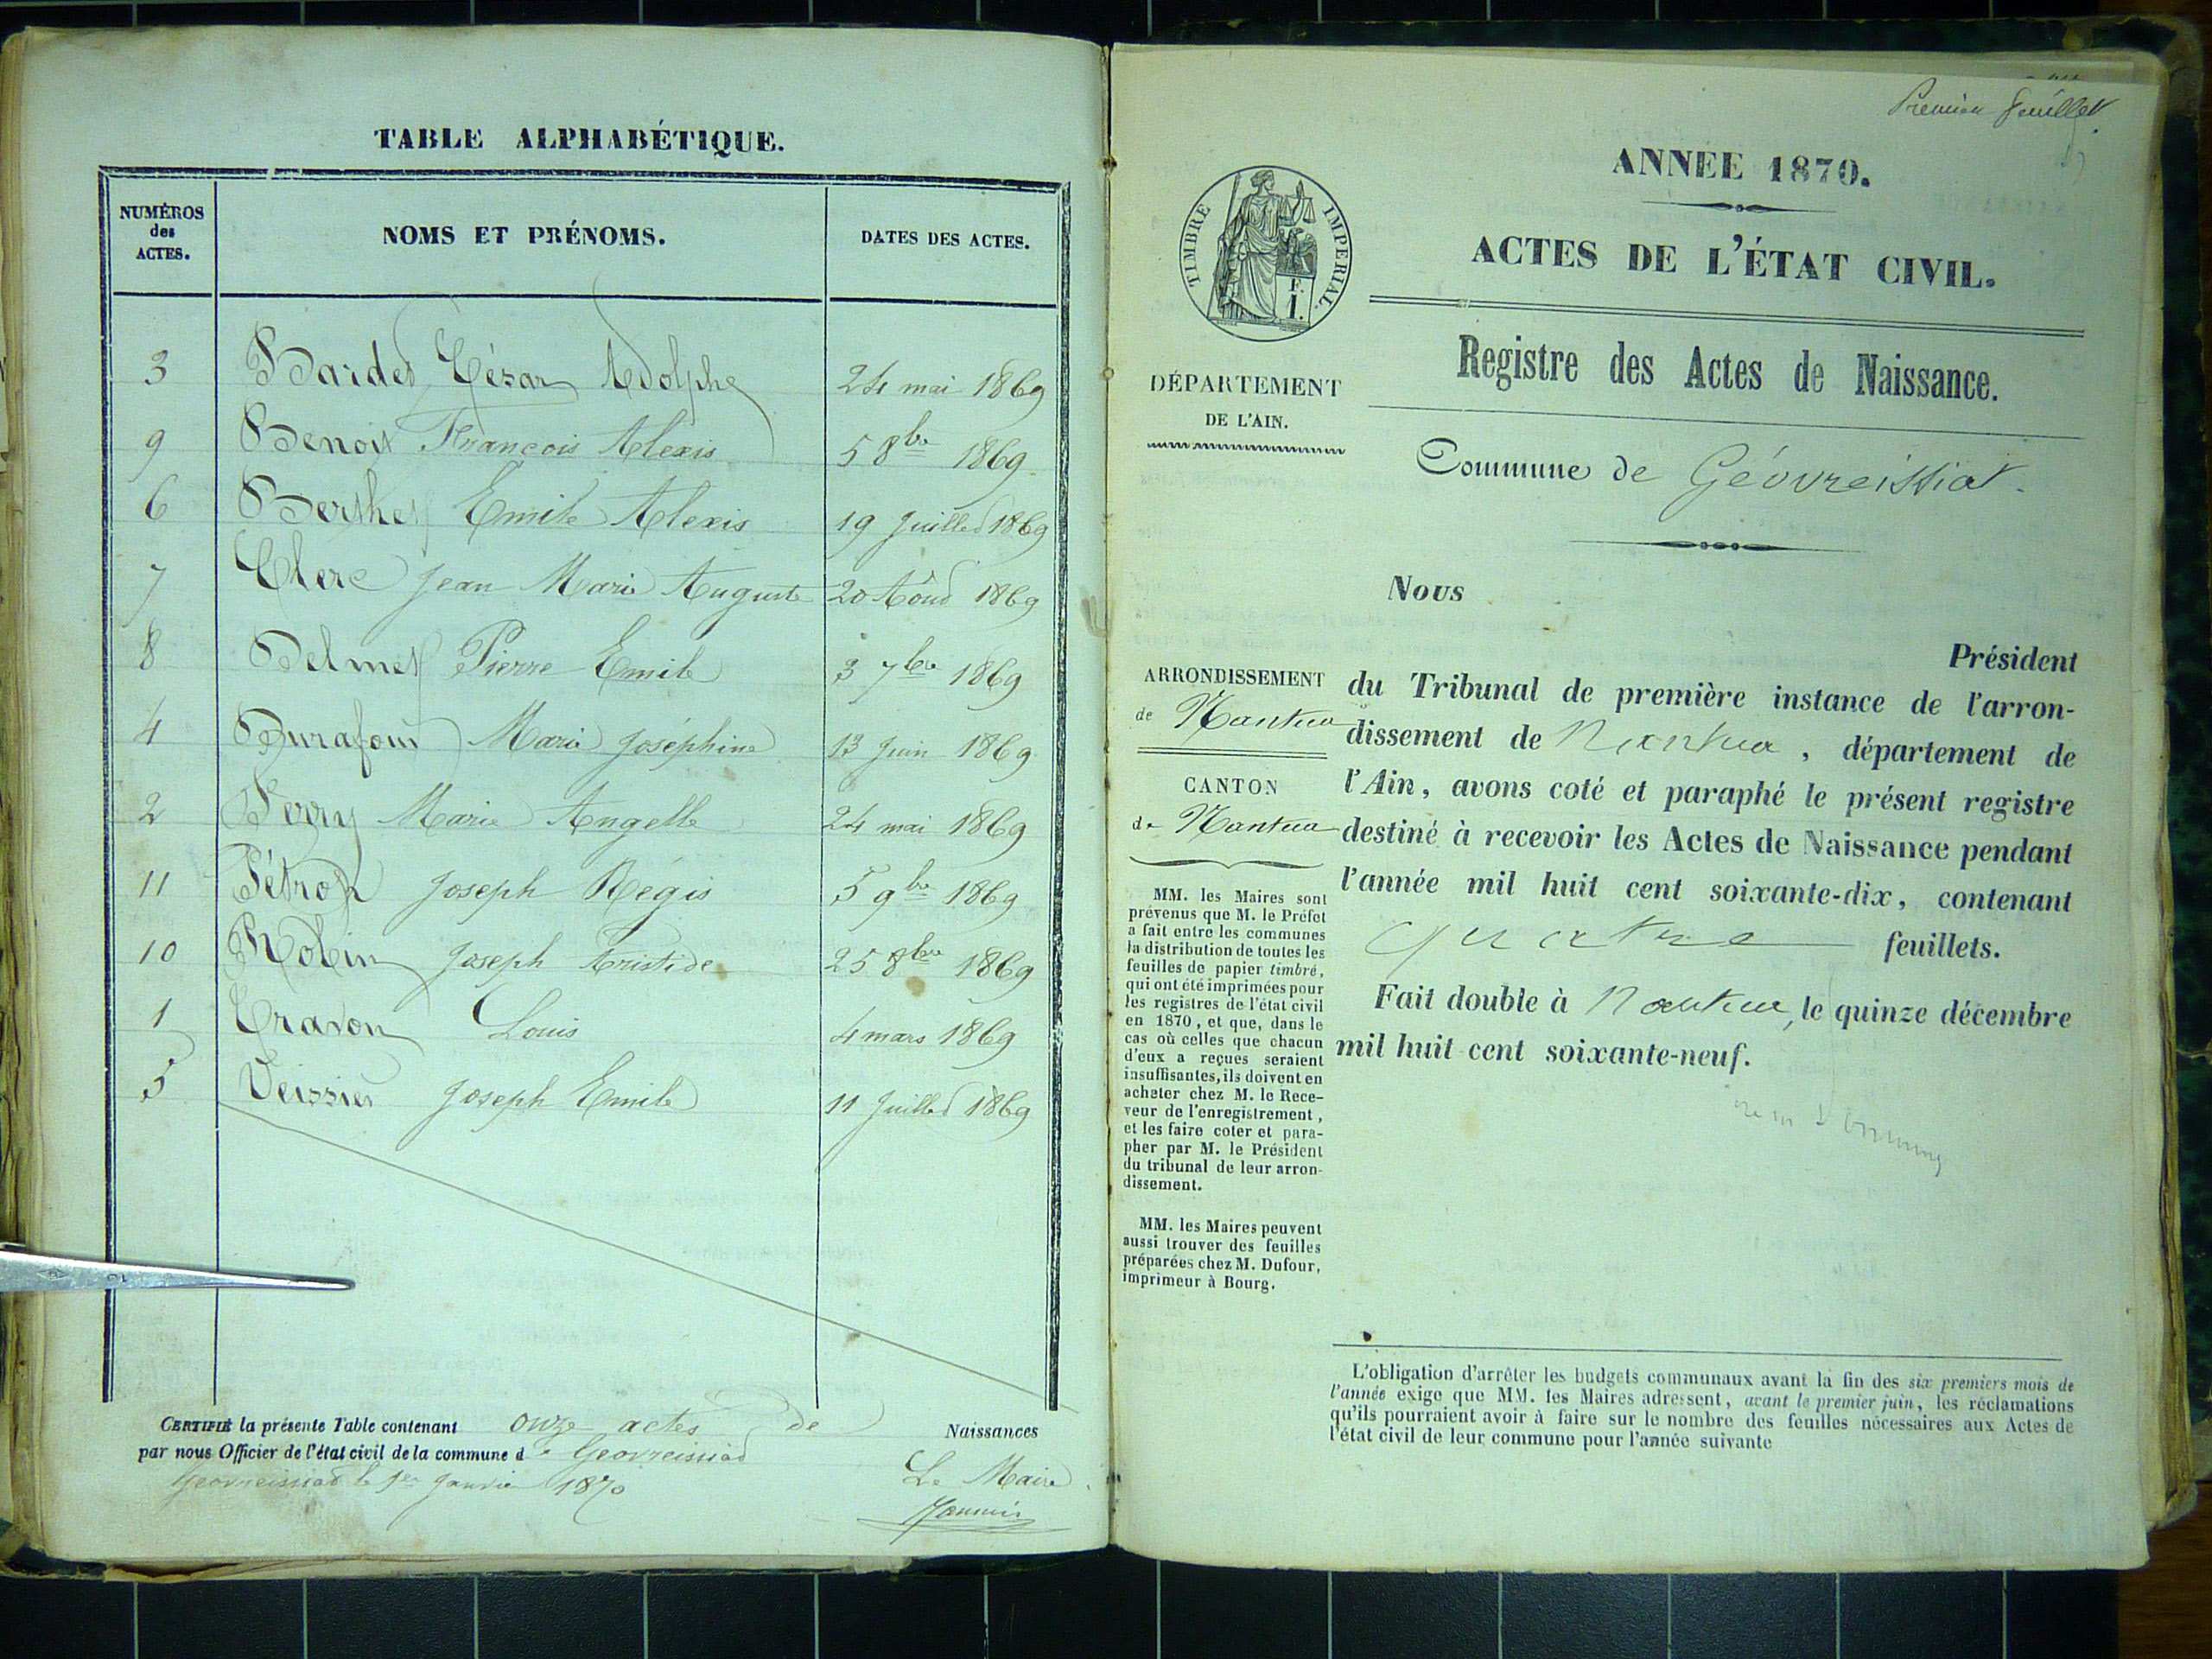 TABLE ALPHABÉTIQUE.
NUMÉROS des ACTES. NOMS ET PRÉNOMS. DATES DES ACTES.
3 Bardet César Adolphe 24 mai 1869
9 Benoit François Alexis 5 8bre 1869
6 Berthet Emile Alexis 19 Juillet 1869
7 Clerc Jean Marie Auguste 20 Aôut 1869
8 Delmet Pierre Emile 3 7bre 1869
4 Durafour Marie Joséphine 13 Juin 1869
2 Perry Marie Angelle 24 mai 1869
11 Joseph Régis 5 9bre 1869
10 Robin Joseph Aristide 25 8bre 1869
1 Cravon Louis 4 mars 1869
5 Veissier Joseph Emile 11 Juillet 1869
CERTIFIÉ la présente Table contenant onze actes de Naissances
par nous Officier de l'état civil de la commune de Geovreissiat
Geovreissiat le 1er Janvier 1870 Le Maire
Premier feuillet.
ANNÉE 1870.
TIMBRE IMPÉRIAL.
E.
1.
ACTES DE L'ÉTAT CIVIL.
Registre des Actes de Naissance.
DÉPARTEMENT
DE L'AIN.
Commune de Géovreissiat.
Nous
Président
du Tribunal de première instance de l'arron-
dissement de Nantua, département de
l'Ain, avons coté et paraphé le présent registre
destiné à recevoir les Actes de Naissance pendant
l'année mil huit cent soixante-dix, contenant
quatre feuillets.
Fait double à Nantua, le quinze décembre
mil huit cent soixante-neuf.
ARRONDISSEMENT
de Nantua
CANTON
de Nantua
MM. les Maires sont
prévenus que M. le Préfet
a fait entre les communes
la distribution de toutes les
feuilles de papier timbré,
qui ont été imprimées pour
les registres de l'état civil
en 1870, et que, dans le
cas où celles que chacun
d'eux a reçues seraient
insuffisantes, ils doivent en
acheter chez M. le Rece-
veur de l'enregistrement,
et les faire coter et para-
pher par M. le Président
du tribunal de leur arron-
dissement.
MM. les Maires peuvent
aussi trouver des feuilles
préparées chez M. Dufour,
imprimeur à Bourg.
L'obligation d'arrêter les budgets communaux avant la fin des six premiers mois de
l'année exige que MM. les Maires adressent, avant le premier juin, les réclamations
qu'ils pourraient avoir à faire sur le nombre des feuilles nécessaires aux Actes de
l'état civil de leur commune pour l'année suivante